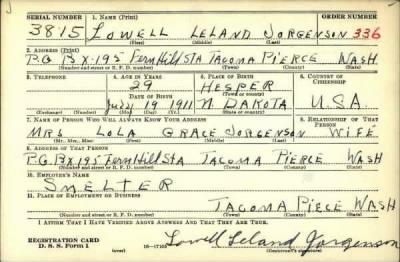 SERIAL NUMBER 1. NAME (Print) ORDER NUMBER
3815 LOWELL LELAND JORGENSON 336
(First) (Middle) (Last)
2. ADDRESS (Print)
P.O. BX-195 Fern Hill STA TACOMA PIERCE WASH
(Number and street or R. F. D. number) (Town) (County) (State)
3. TELEPHONE 4. AGE IN YEARS 5. PLACE OF BIRTH 6. COUNTRY OF CITIZENSHIP
29 HESPER
DATE OF BIRTH (Town or county)
July 19 1911 N. DAKOTA U.S.A.
(Exchange) (No.) (Mo.) (Day) (Yr.) (State or country)
7. NAME OF PERSON WHO WILL ALWAYS KNOW YOUR ADDRESS 8. RELATIONSHIP OF THAT PERSON
MRS LOLA GRACE JORGENSON WIFE
(Mr., Mrs., Miss) (First) (Middle) (Last)
9. ADDRESS OF THAT PERSON
P.O. BX 195 Fern Hill Sta TACOMA PIERCE WASH
(Number and street or R. F. D. number) (Town) (County) (State)
10. EMPLOYER'S NAME
SMELTER
11. PLACE OF EMPLOYMENT OR BUSINESS
TACOMA PIECE WASH
(Number and street or R. F. D. number) (Town) (County) (State)
I AFFIRM THAT I HAVE VERIFIED ABOVE ANSWERS AND THAT THEY ARE TRUE.
REGISTRATION CARD
D. S. S. Form 1 (over) 16—17105 Lowell Leland Jorgenson
(Registrant's signature)